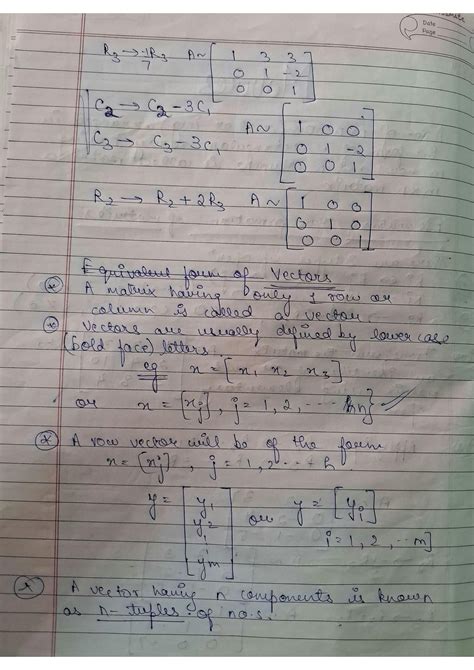 Date
Page
R₃ → -1/7 R₃ A ~ [ 1 3 3
0 1 -2
0 0 1 ]
C₂ → C₂ - 3C₁
C₃ → C₃ - 3C₁ A ~ [ 1 0 0
0 1 -2
0 0 1 ]
R₂ → R₂ + 2R₃ A ~ [ 1 0 0
0 1 0
0 0 1 ]
Equivalent form of Vectors
A matrix having only 1 row or
column is called a vector
Vectors are usually defined by lower case
(bold face) letters.
eg x = [x₁ x₂ x₃]
or x = [xj], j = 1, 2, ... n]
A row vector will be of the form
x = [xj], j = 1, 2 ... n.
y = [ y₁
y₂
⋮
ym ] or y = [yi]
i = 1, 2, ... m]
A vector having n components is known
as n-tuples of no.s.